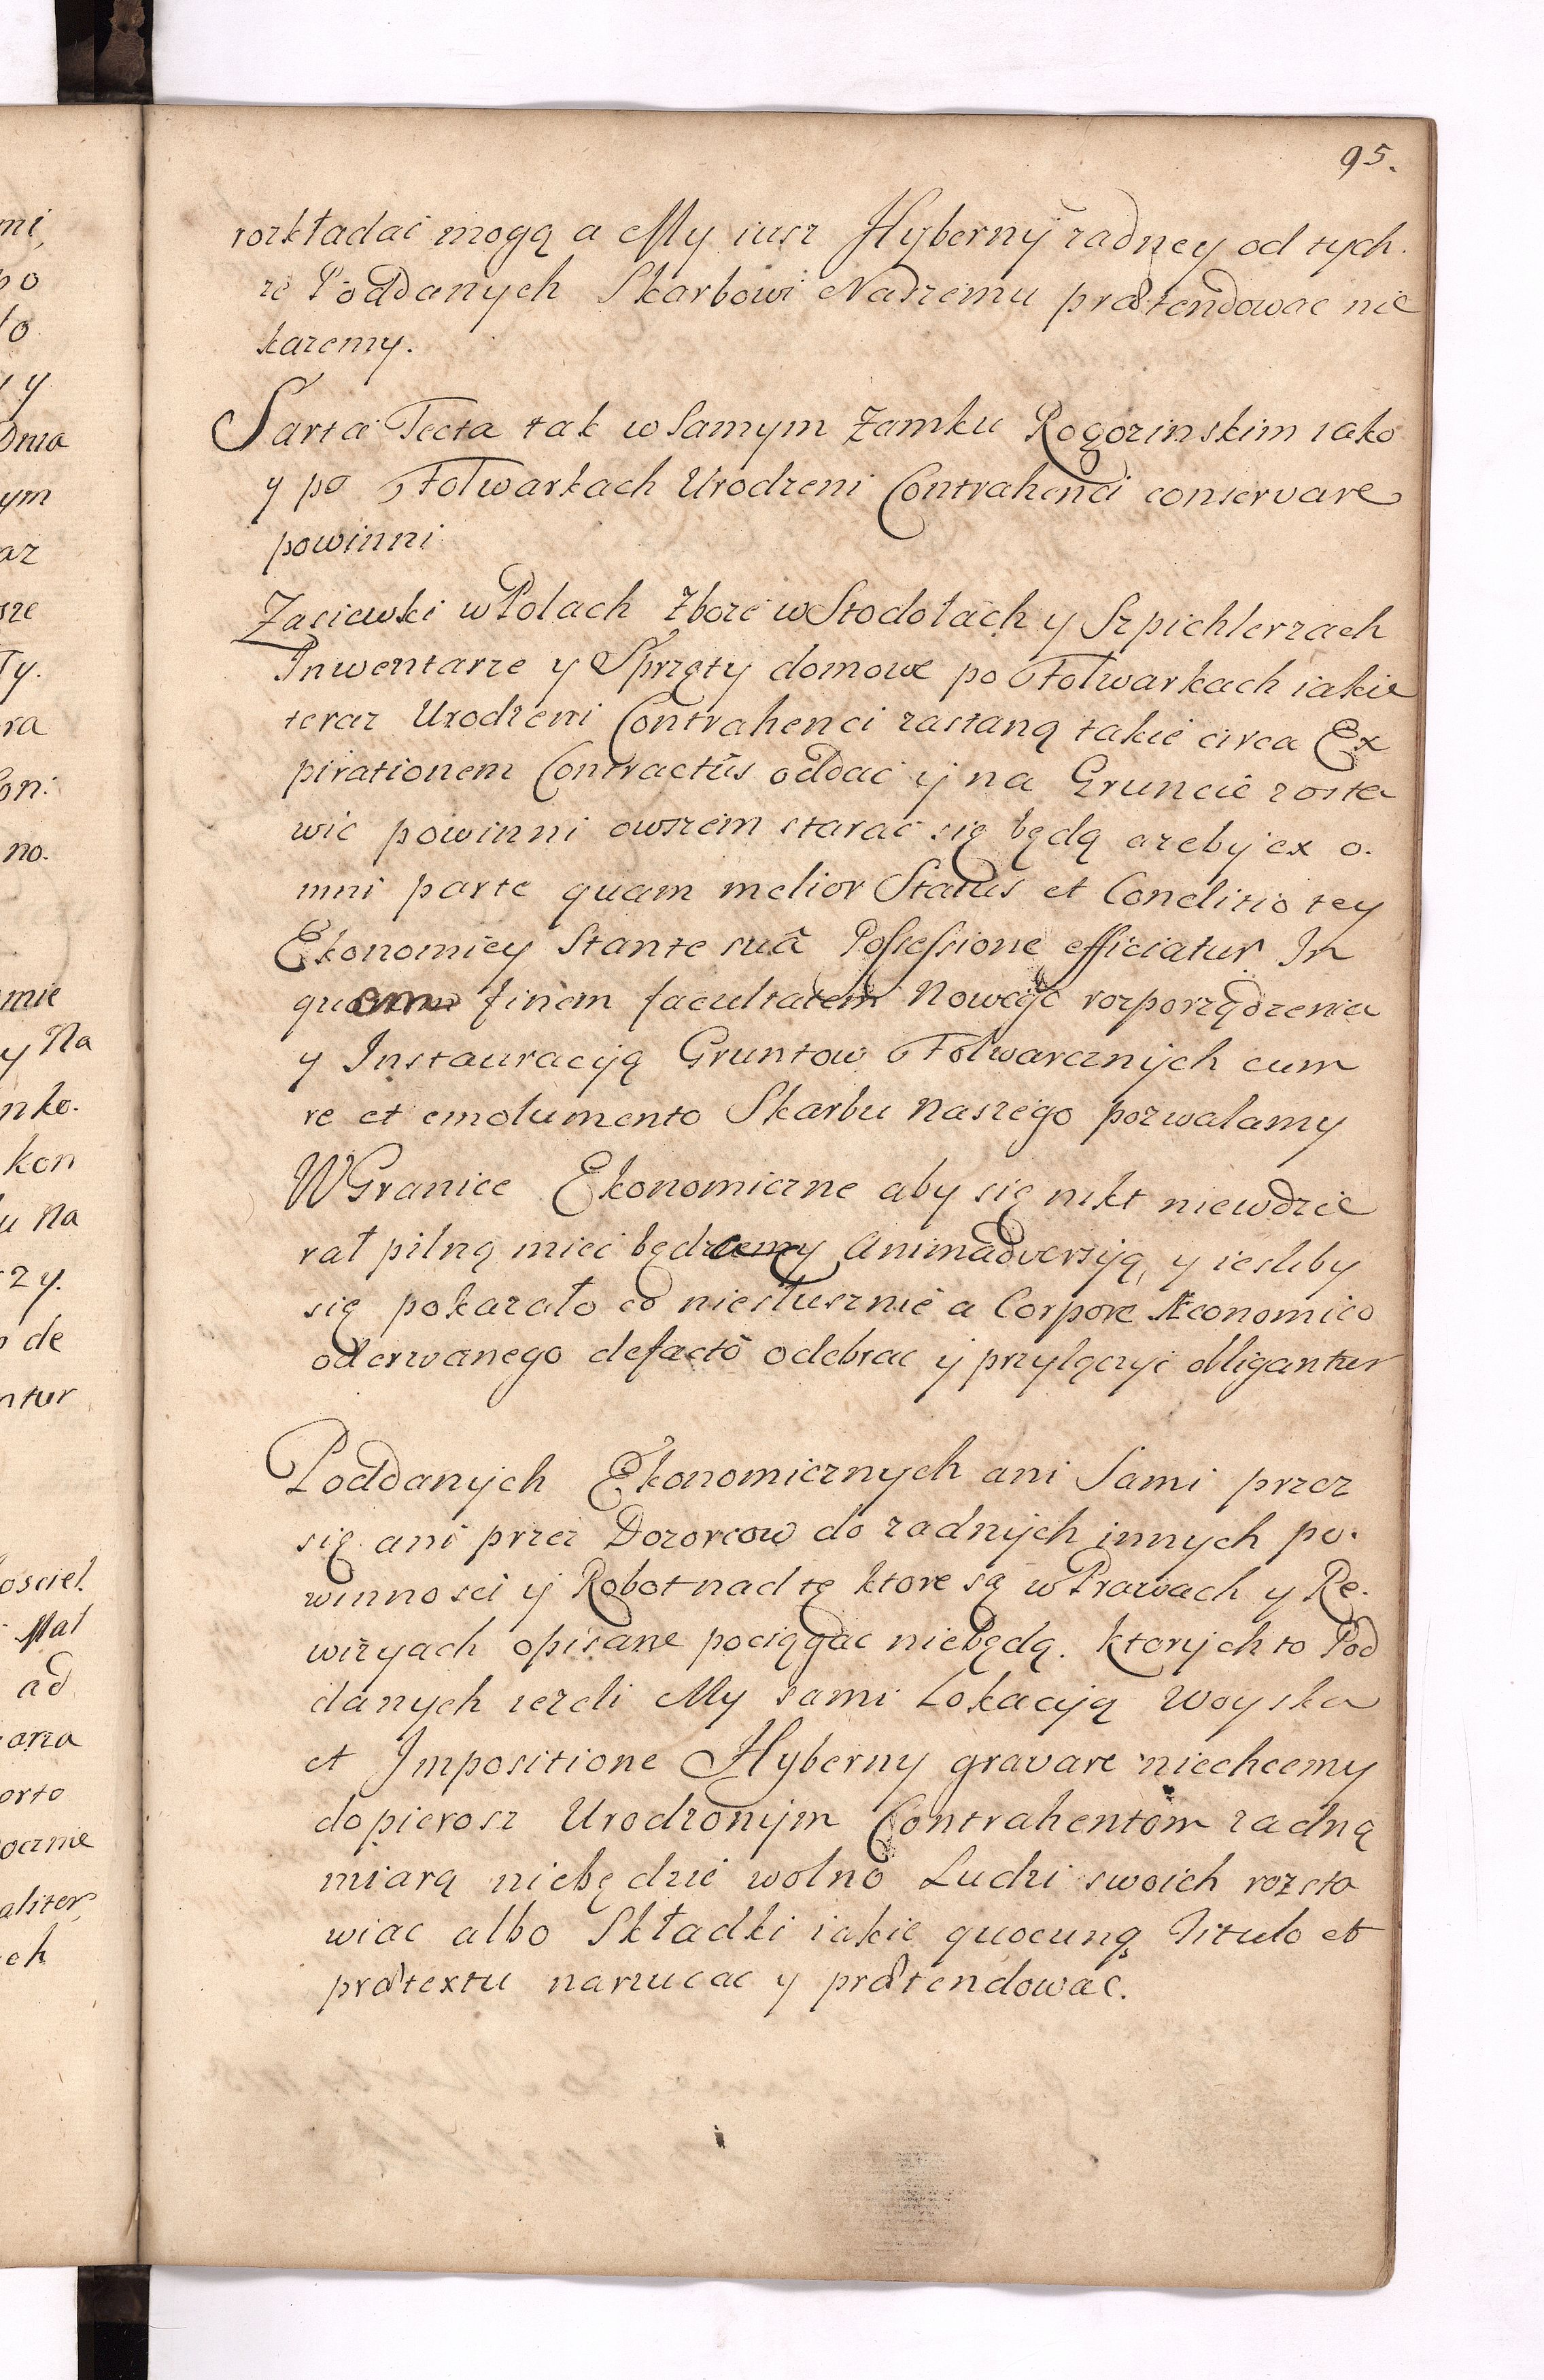 95.
rozkładać mogą a My iusz Hyberny żadney od tych
ze Poddanych Skarbowi Naszemu prætendowac nie
każemy.
Sarta Tecta tak w Samym Zamku Rogozinskim iako
y po Folwarkach Urodzeni Contrahenci conservare
powinni
Zasiewki w Polach Zboże w Stodołach y Szpichlerzach
Inwentarze y Sprzęty domowe po Folwarkach iakie
teraz Urodzeni Contrahenci zastaną takie circa Ex
pirationem Contractûs oddać ÿ na Gruncie zosta
wic powinni owszem starać się będą ażebÿ ex o.
mni parte quam melior Status et Conditio tey
Ekonomiey Stante suâ Possessione efficiatur In
quem finem facultatem Nowego rozporządzenia
y Instauracÿą Gruntow Folwarcznÿch cum
re et emolumento Skarbu Naszego pozwalamy
W Granice Ekonomiczne aby się nikt niewdzie
rał pilną mieć będziemy Animadversÿą, y iesliby
się pokazało co niesłusznie a Corpore Æconomico
oderwanego defactô odebrac ÿ przyłączyć obligantur
Poddanÿch Ekonomicznych ani Sami przez
się ani przez Dozorcow do żadnÿch innych po.
winnosci ÿ Robot nad te ktore są w Prawach y Re.
wizyach opisane pociągac niebędą. ktorÿch to Pod
danych ieżeli My sami Lokacÿą Woyska
et Impositione Hyberny gravare niechcemy
dopierosz Urodzonÿm Contrahentom żadną
miarą niebędzie wolno Ludzi swoich rozsta
wiac albo Składki iakie quocunq Titulo et
prætextu narzucac y prætendować.
mi,
po
to
y
Dnia
ym
az
sze
Ty.
ra
on:
no.
mie
y Na
nko.
kon
u Na
rzy.
de
ntur
oscieł.
Mat
ad
orto
ocznie
aliter
ch